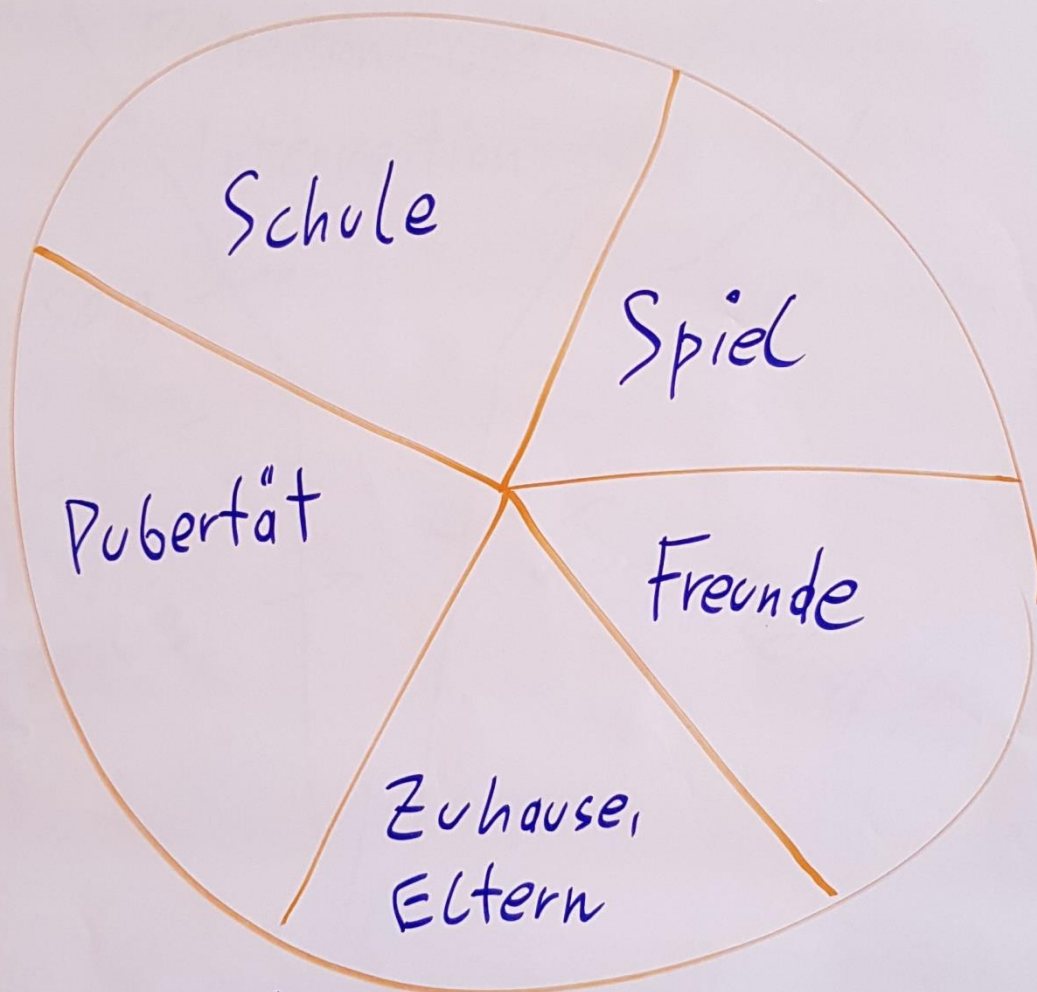 Schule
Spiel
Pubertät
Freunde
Zuhause,
Eltern